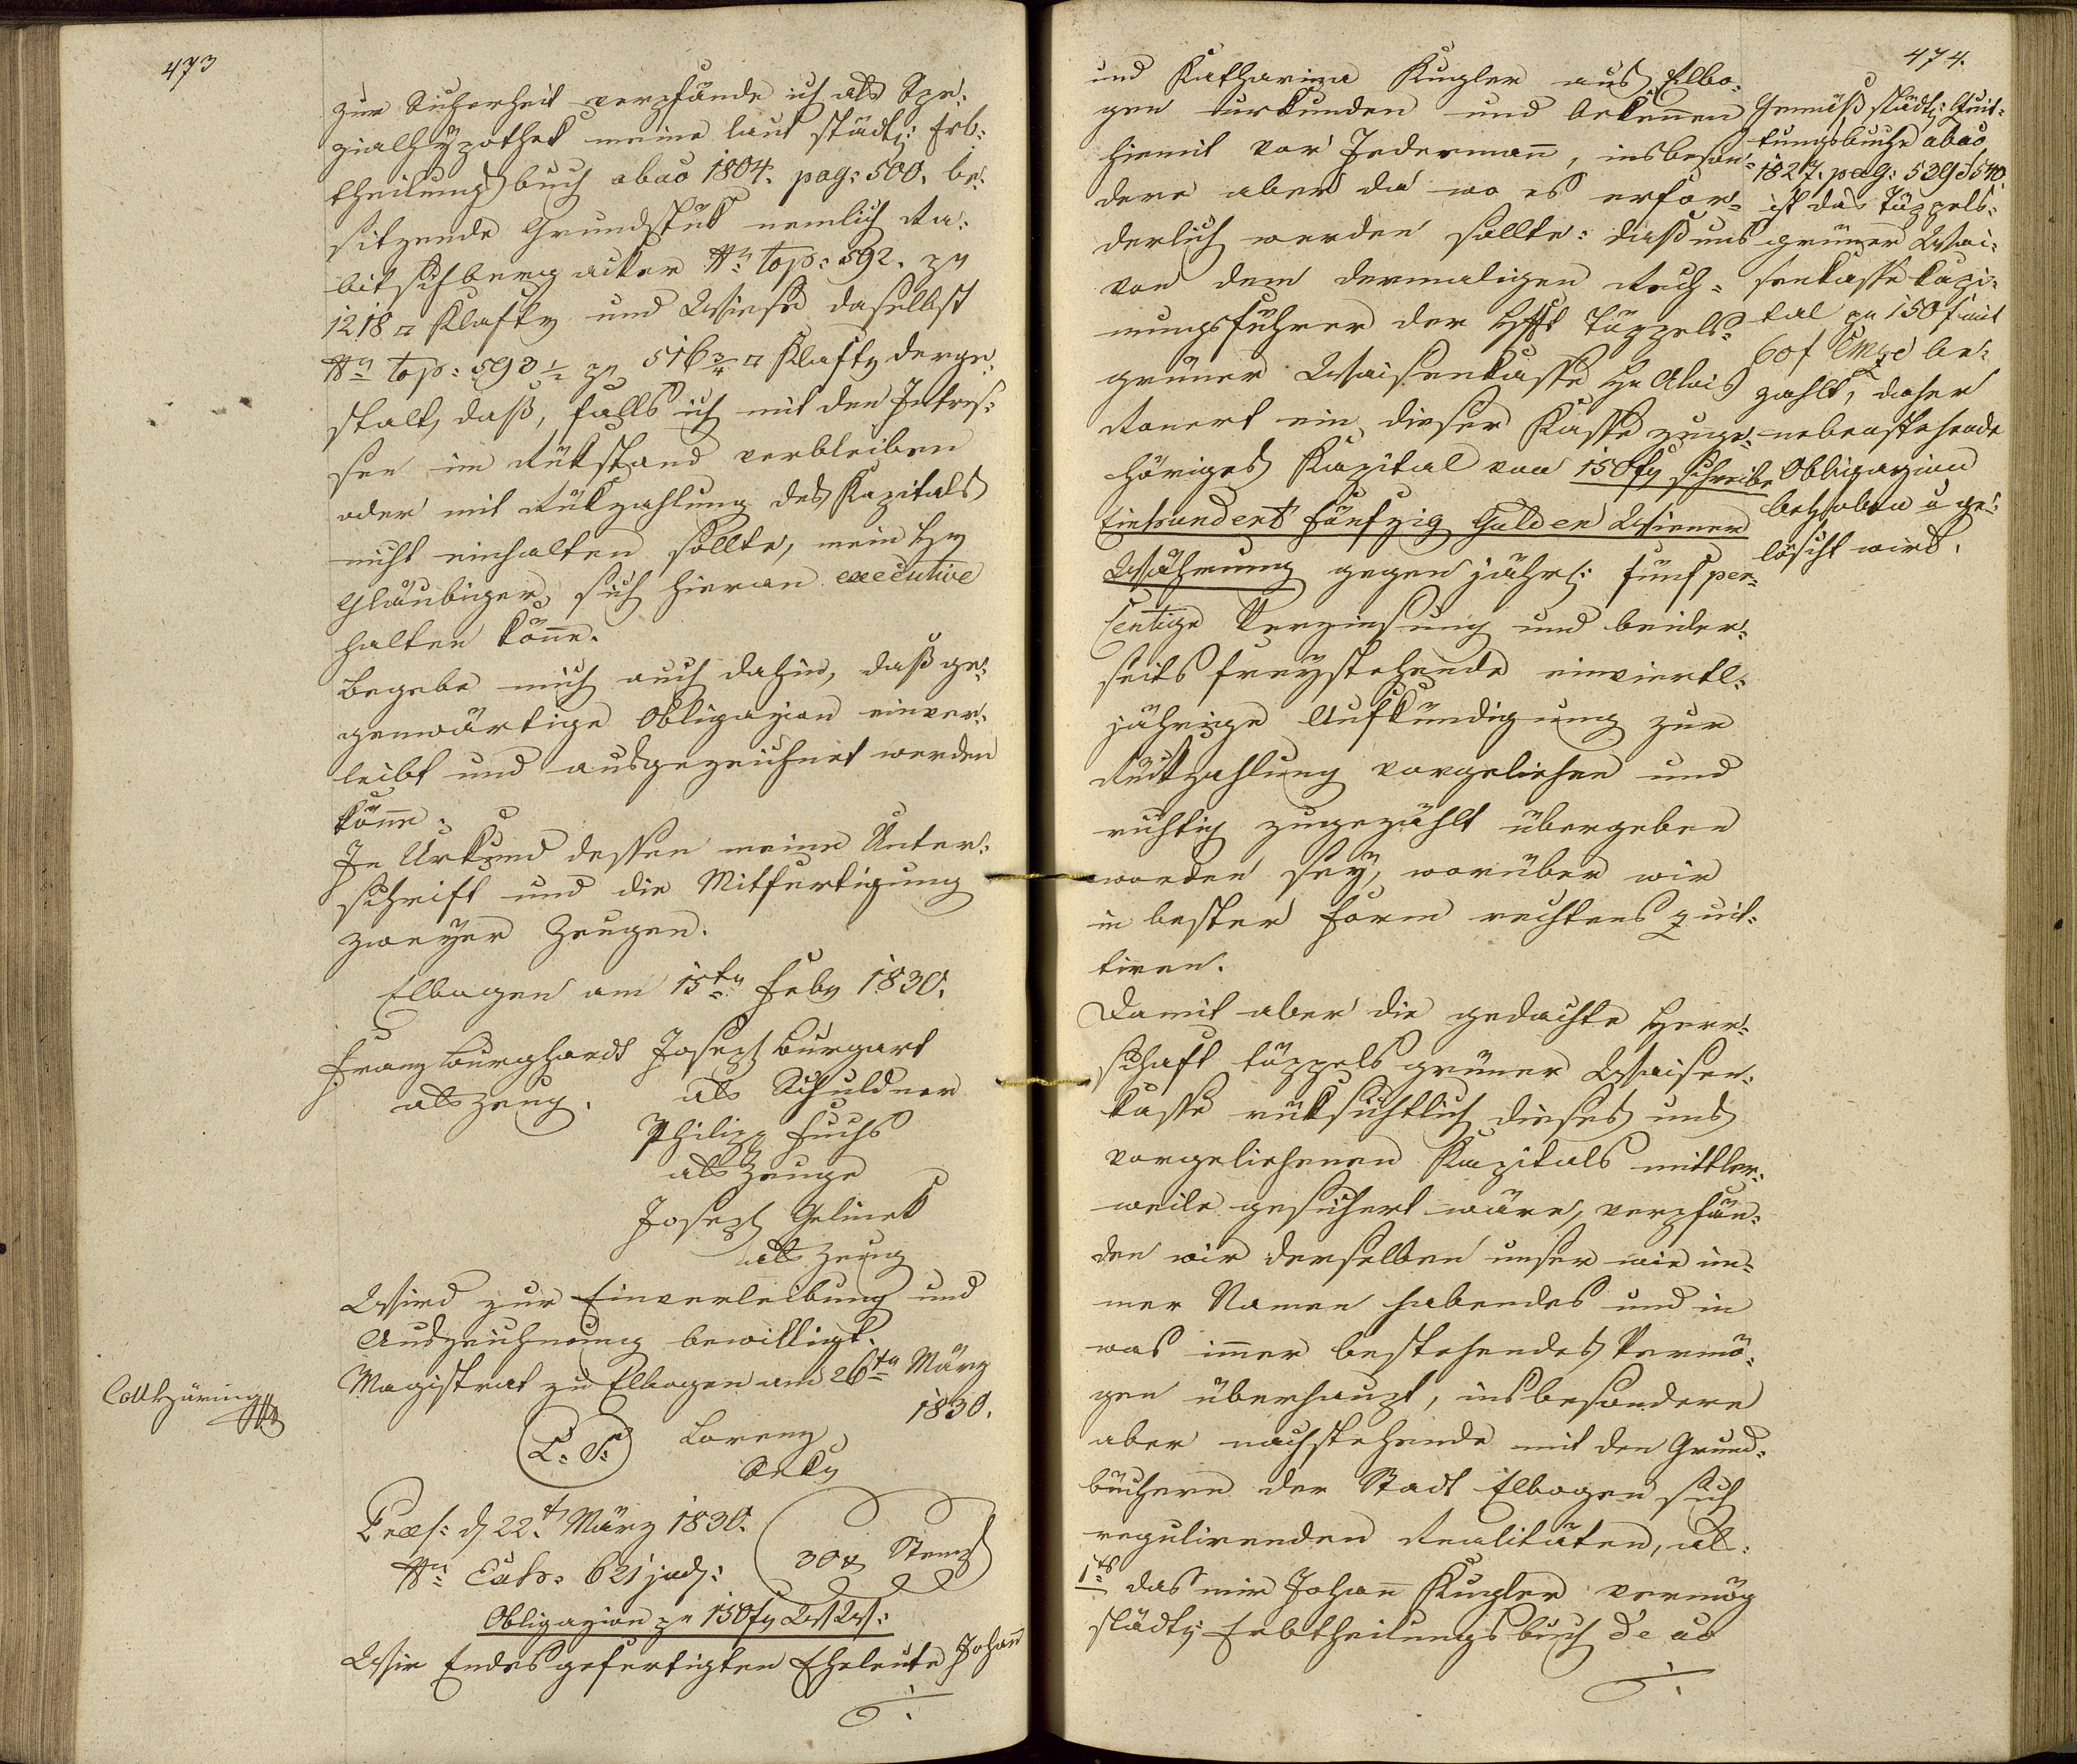 473
zur Sicherheit verpfände ich als Spe:
zialhypothek meine laut städti: Erb:
theilungsbuch abao 1804. pag: 500. be:
sitzende Grundstük nemlich Ra:
bitschberg aker No top: 592. zu
1218 □ Klaftr und Wiese daselbst
No top: 593 1/2 zu 516 3/4 □ Klaftr derge:
stalt, daß, falls ich mit den Intres:
sen im Rükstand verbleiben
oder mit Rükzahlung des Kapitals
nicht einhalten sollte, mein Hr
Gläubiger sich hieran executive
halten könne.
Begebe mich auch dahin, daß ge:
genwärtige Obligazion einver:
leibt und ausgezeichnet werden
könne.
In Urkund dessen meine Unter:
schrift und die Mitfertigung
zweyer Zeugen.
Elbogen am 15ten Febr 1830.
Franz Burghardt Joseph Burgart
als Zeug. als Schuldner
Philipp Fuchs
als Zeuge
Joseph Gelinek
als Zeug
Wird zur Einverleibung und
Auszeichnung bewilligt.
Magistrat zu Elbogen am 26ten März
1830.
Coll Häring
L. S. Lorenz
Sekr
Præs: d 22t März 1830.
No Exh: 621 jud:
30 x Stemp
Obligazion zu 150 fr WW:
Wir Endesgefertigten Eheleute Johañ
474.
und Katharina Kugler aus Elbo:
gen urkunden und bekeñen
hiemit vor Jedermañ, insbeson:
dere aber da wo es erfor:
derlich werden sollte: daß uns
von dem dermaligen Rech:
nungsführer der Hsft Täppels:
grüner Waisenkasse Hr Alois
Ronert ein dieser Kasse zuge:
höriges Kapital von 150 fr schreibe
Einhundert fünfzig Gulden Wiener
Währung gegen jährl: fünf per:
centige Verzinsung und beider:
seits freystehende einviertl:
jährige Aufkündigung zur
Rükzahlung vorgeliehen und
richtig zugezählt übergeben
worden sey, worüber wir
in bester Form rechtens quit:
tiren.
Damit aber die gedachte Herr:
schaft täppelsgrüner Waisen:
kasse rüksichtlich dieses uns
vorgeliehenen Kapitals mittler:
weile gesichert wäre, verpfän:
den wir derselben unser wie im:
mer Namen habendes und in
was im̃er bestehendes Vermö:
gen überhaupt, insbesondere
aber nachstehende mit den Grund:
büchern der Stadt Elbogen sich
regulirenden Realitäten, als:
1tes das mir Johañ Kugler vermög
städti: Erbtheilungsbuch de ao
Gemäß städti: Quit:
tungsbuche abao
1827. pag: 539 & 540.
ist das Täppels:
grüner Wai:
senkasse Kapi:
tal zu 150 f mit
60 f CMze be:
zahlt, daher
nebenstehende
Obligazion
behoben u ge:
löscht wird.